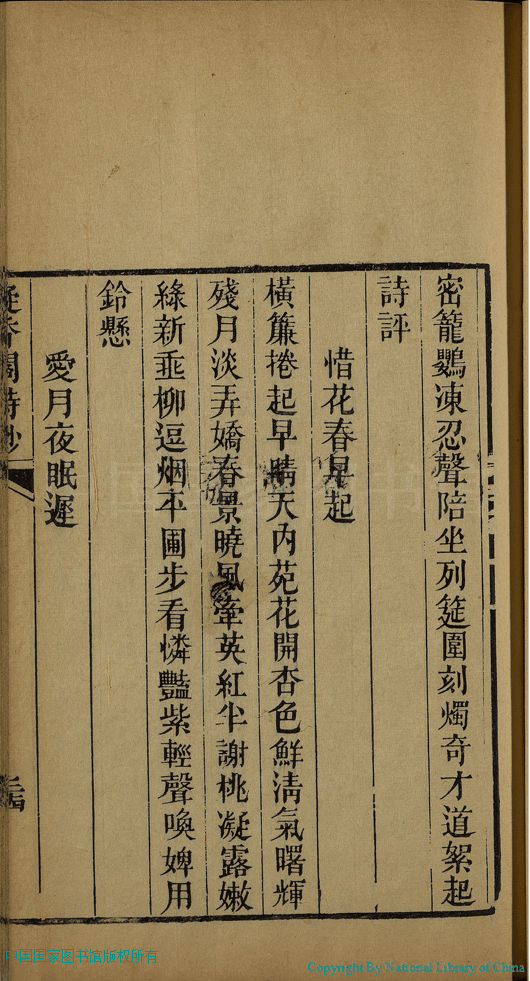 密籠鸚凍忍聲陪坐列筵圍刻燭奇才道絮起
詩評
惜花春早起
橫簾捲起早晴天內苑花開杏色鮮淸氣曙輝
殘月淡弄嬌春景曉風牽英紅半謝桃凝露嫩
綠新垂柳逗烟平圃步看憐豔紫輕聲喚婢用
鈴懸
愛月夜眠遲
香閣詩鈔
中国国家图书馆版权所有
Copyright By National Library of China